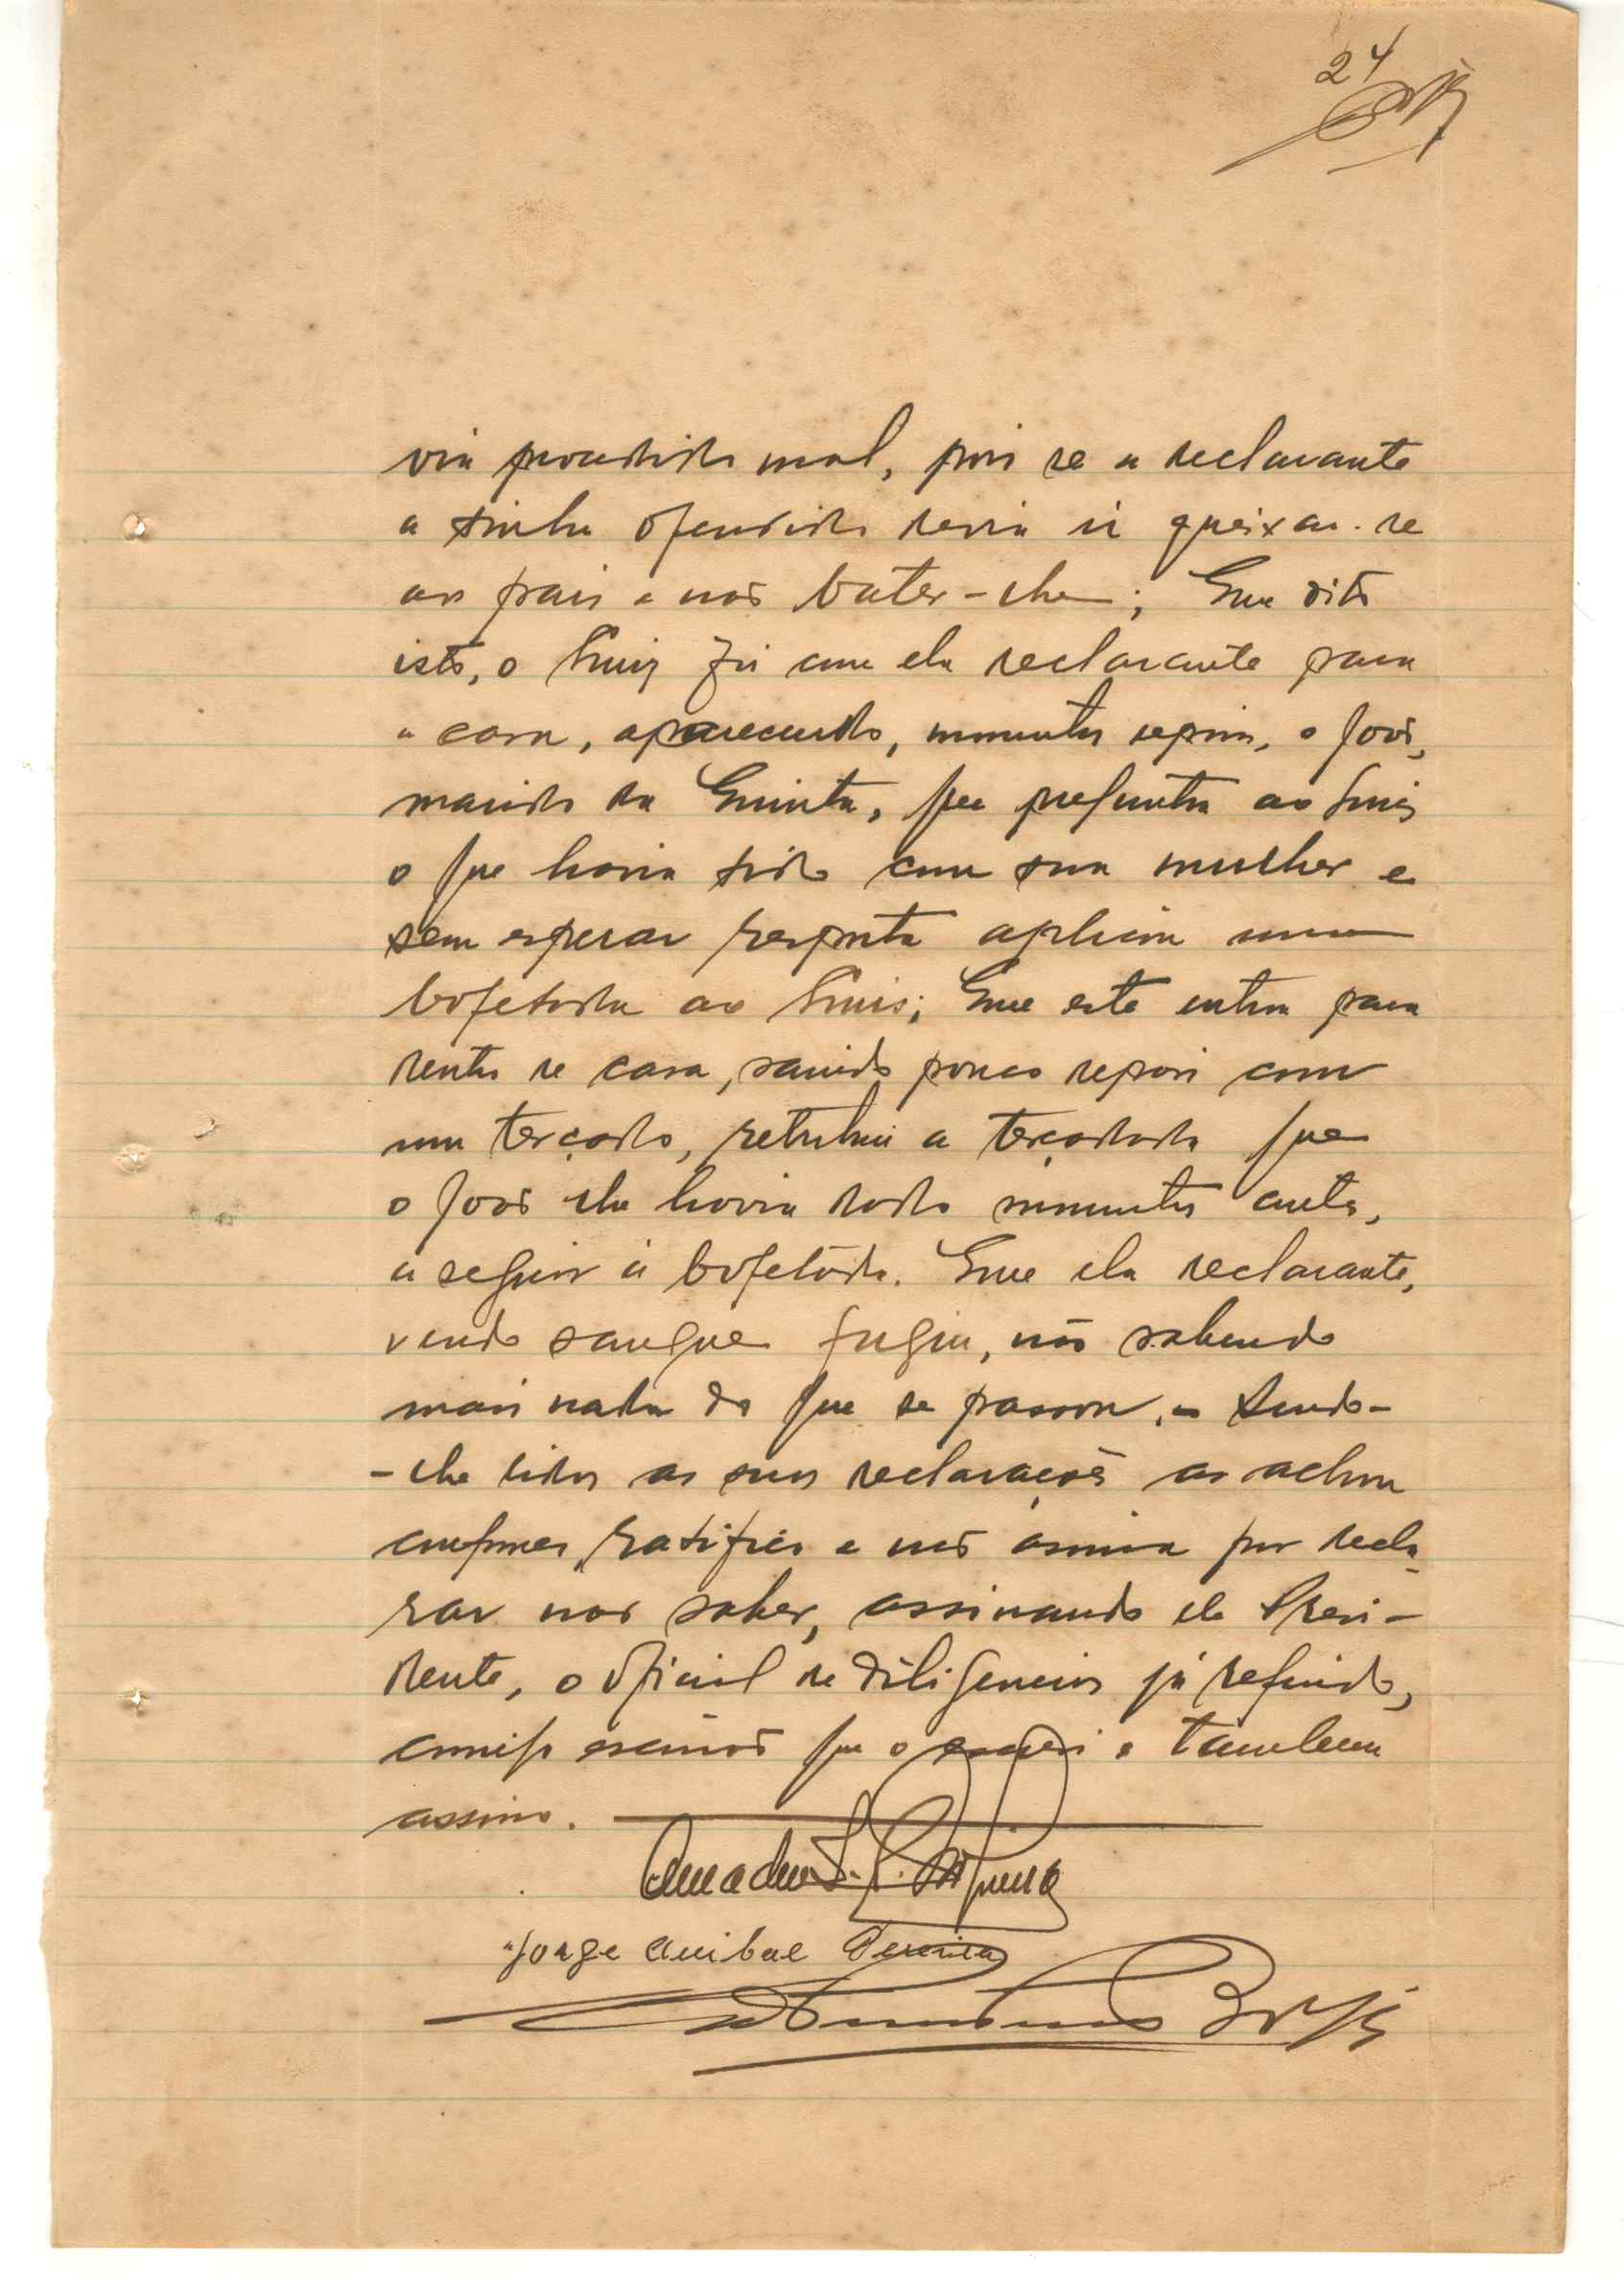 24
via procedido mal, pois se a declarante
a tinha ofendido devia ir queixar-se
aos pais e não bater-lhe; Que dito
isto, o Luis foi com ela declarante para
a casa, aparecendo, momentos depois, o João,
marido da Quinta, que preguntou ao Luis
o que havia tido com sua mulher e
sem esperar resposta aplicou uma
bofetada ao Luis; Que este entrou para
dentro de casa, saindo pouco depois com
um terçado, retribuiu a terçadada que
o João lhe havia dado momentos antes,
a seguir á bofetada. Que ela declarante,
vendo sangue fugiu, não sabendo
mais nada do que se passou. - Sendo-
-lhe lidas as suas declarações as achou
conformes, ratifica e não assina por decla-
rar não saber, assinando ele Presi-
dente, o oficial de diligencias já referido,
comigo escrivão que o escrevi e tambem
assino.
Amadeu
Jorge Anibal Pereira